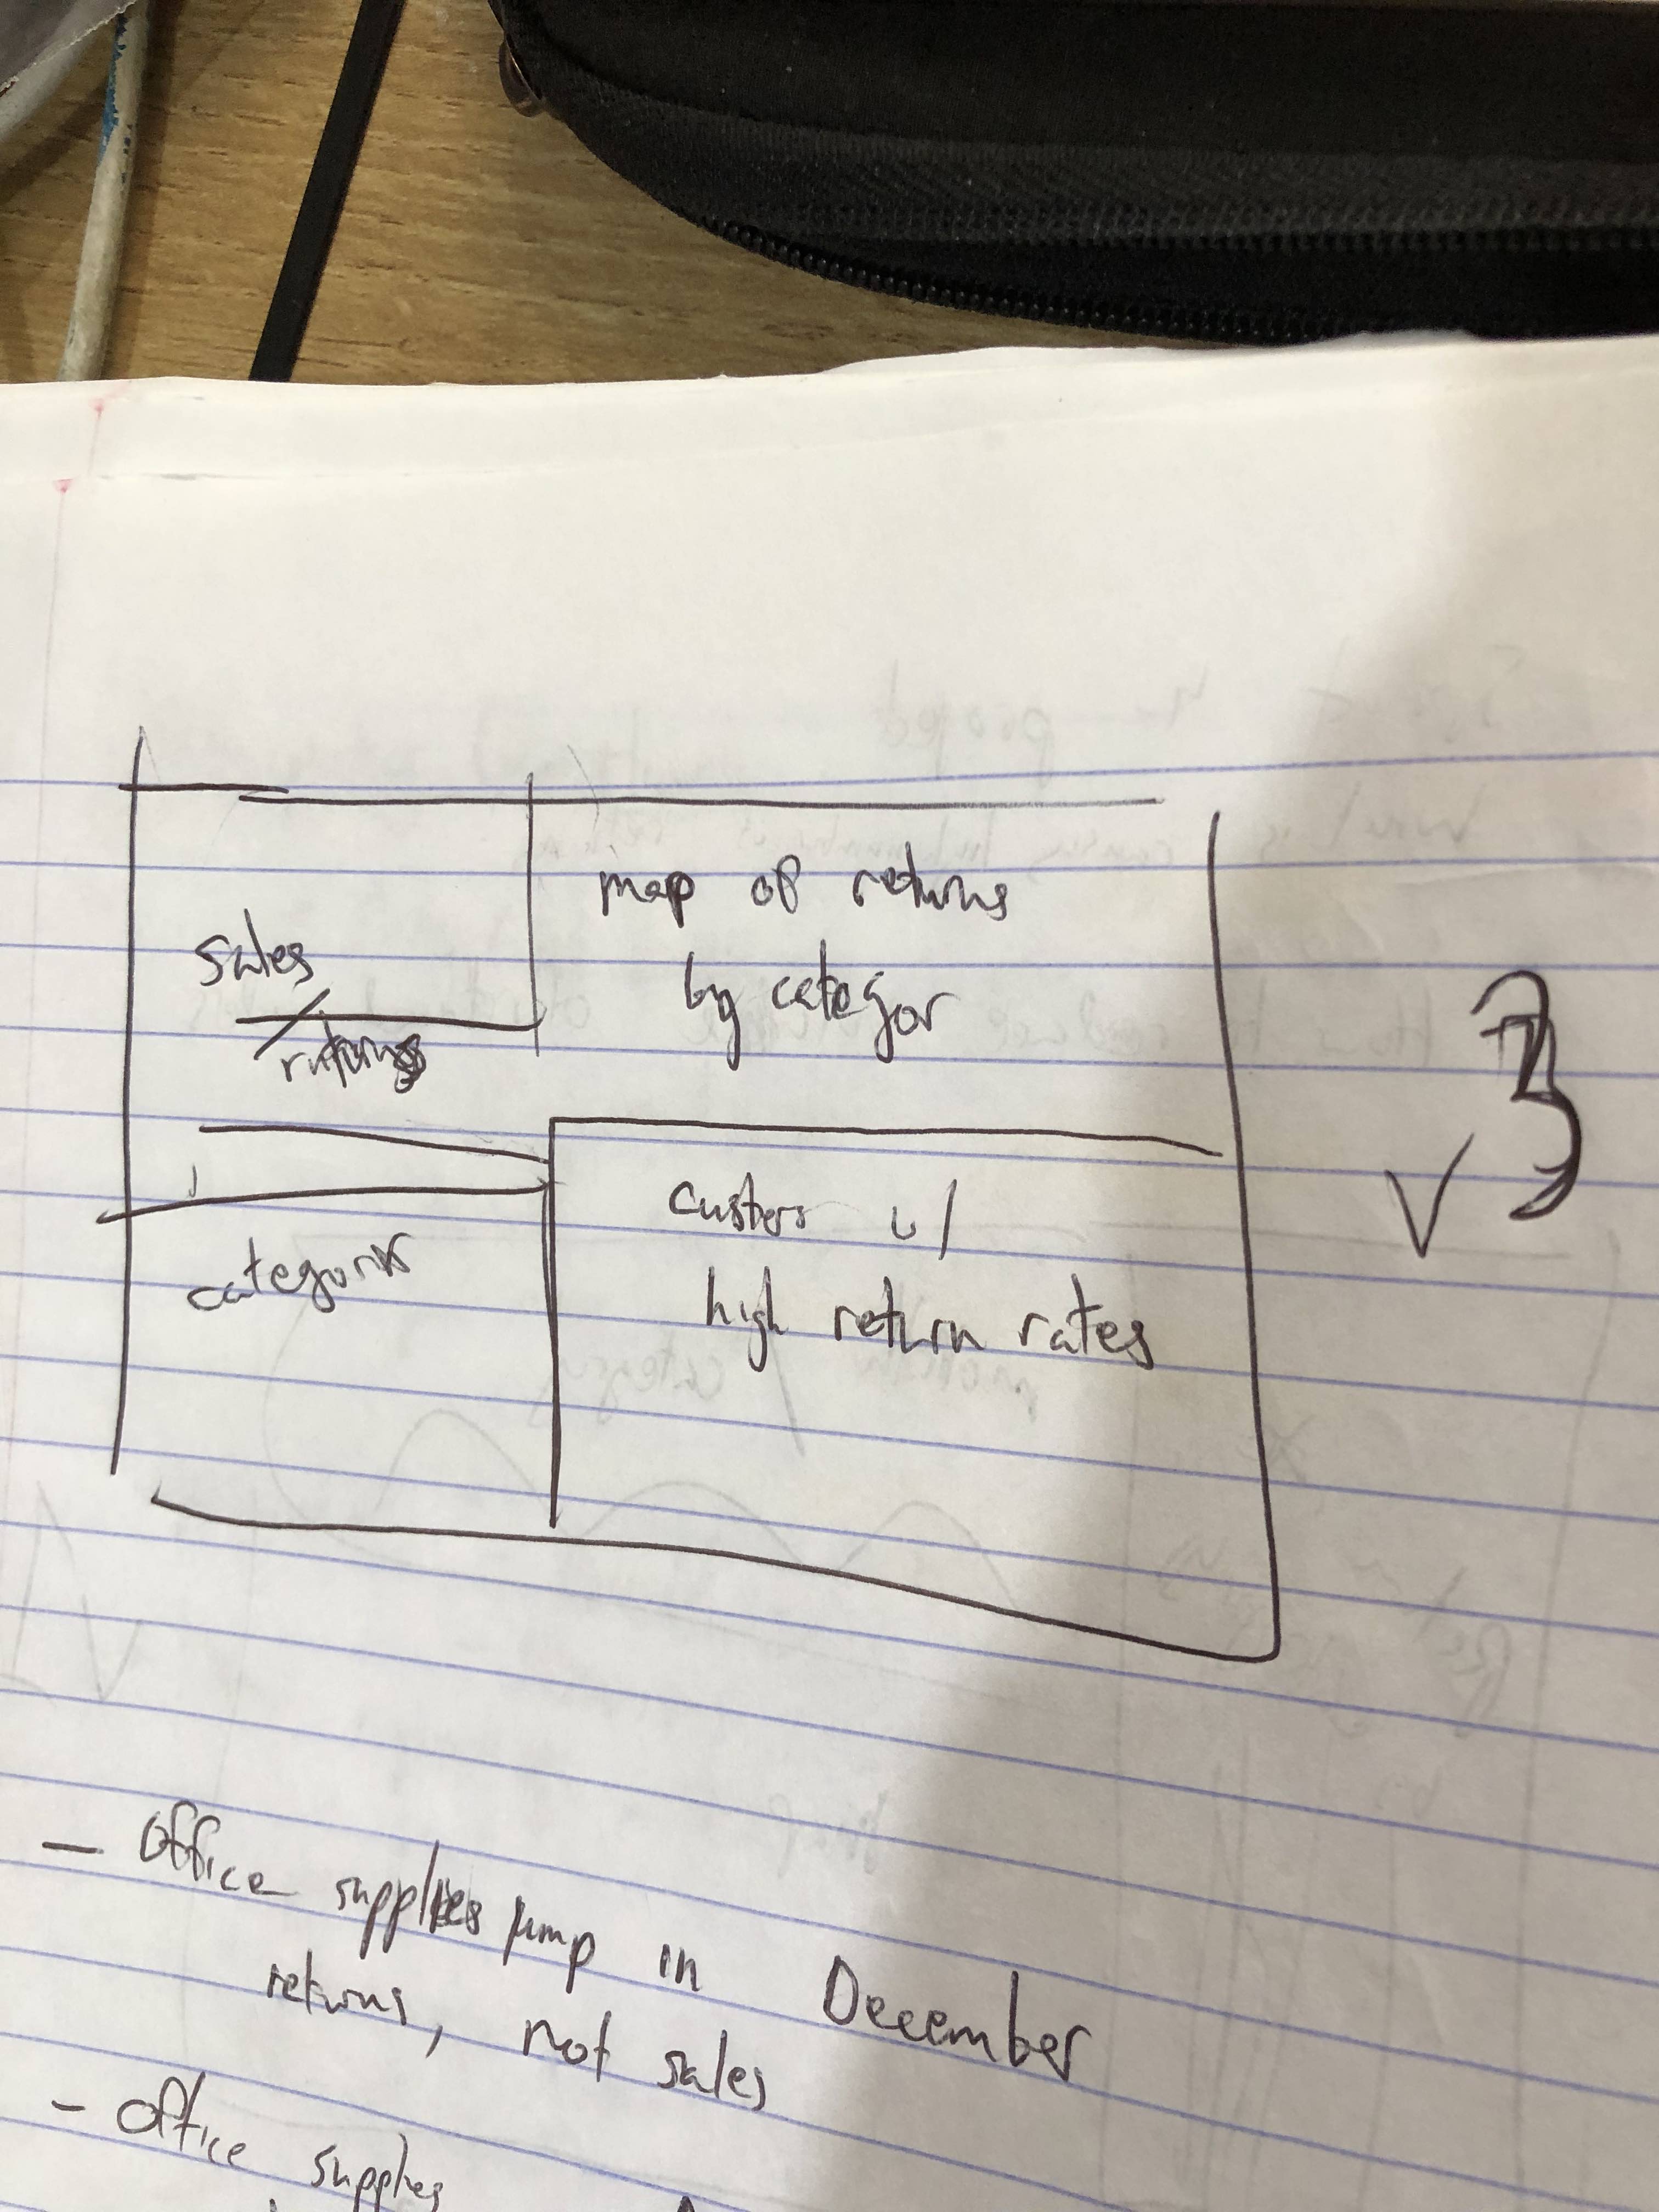 sales
/
returns
map of returns
by categor
categories
Custers w/
high return rates
V3
- Office supplies jump in December
returns, not sales
- Office supplies